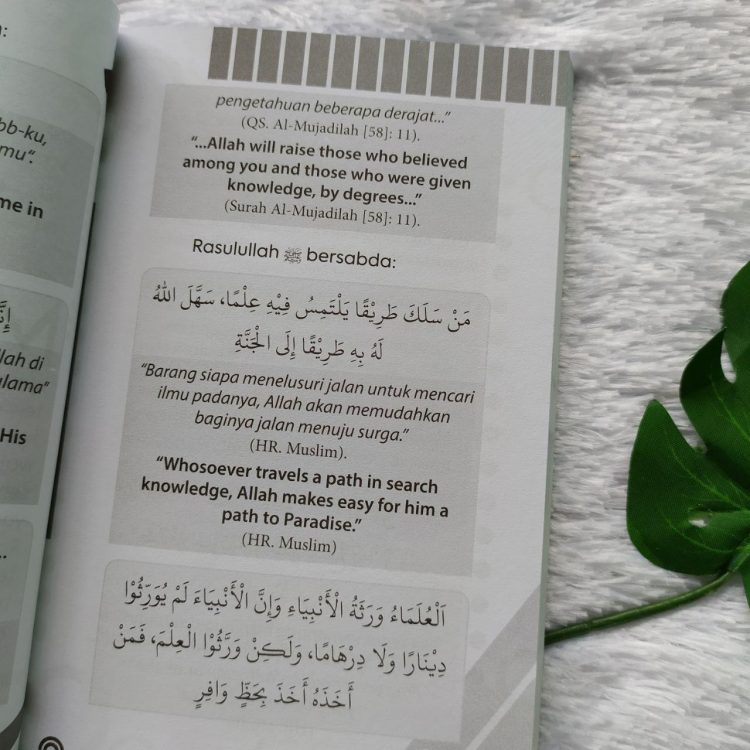 :
bb-ku,
mu”.
me in
إِنَّ
lah di
ulama”
His
...
pengetahuan beberapa derajat...”
(QS. Al-Mujadilah [58]: 11).
“...Allah will raise those who believed
among you and those who were given
knowledge, by degrees...”
(Surah Al-Mujadilah [58]: 11).
Rasulullah ﷺ bersabda:
مَنْ سَلَكَ طَرِيْقًا يَلْتَمِسُ فِيْهِ عِلْمًا، سَهَّلَ اللهُ
لَهُ بِهِ طَرِيْقًا إِلَى الْجَنَّةِ
“Barang siapa menelusuri jalan untuk mencari
ilmu padanya, Allah akan memudahkan
baginya jalan menuju surga.”
(HR. Muslim).
“Whosoever travels a path in search
knowledge, Allah makes easy for him a
path to Paradise.”
(HR. Muslim)
اَلْعُلَمَاءُ وَرَثَةُ الْأَنْبِيَاءِ وَإِنَّ الْأَنْبِيَاءَ لَمْ يُوَرِّثُوْا
دِيْنَارًا وَلَا دِرْهَامًا، وَلَكِنْ وَرَّثُوْا الْعِلْمَ، فَمَنْ
أَخَذَهُ أَخَذَ بِحَظٍّ وَافِرٍ